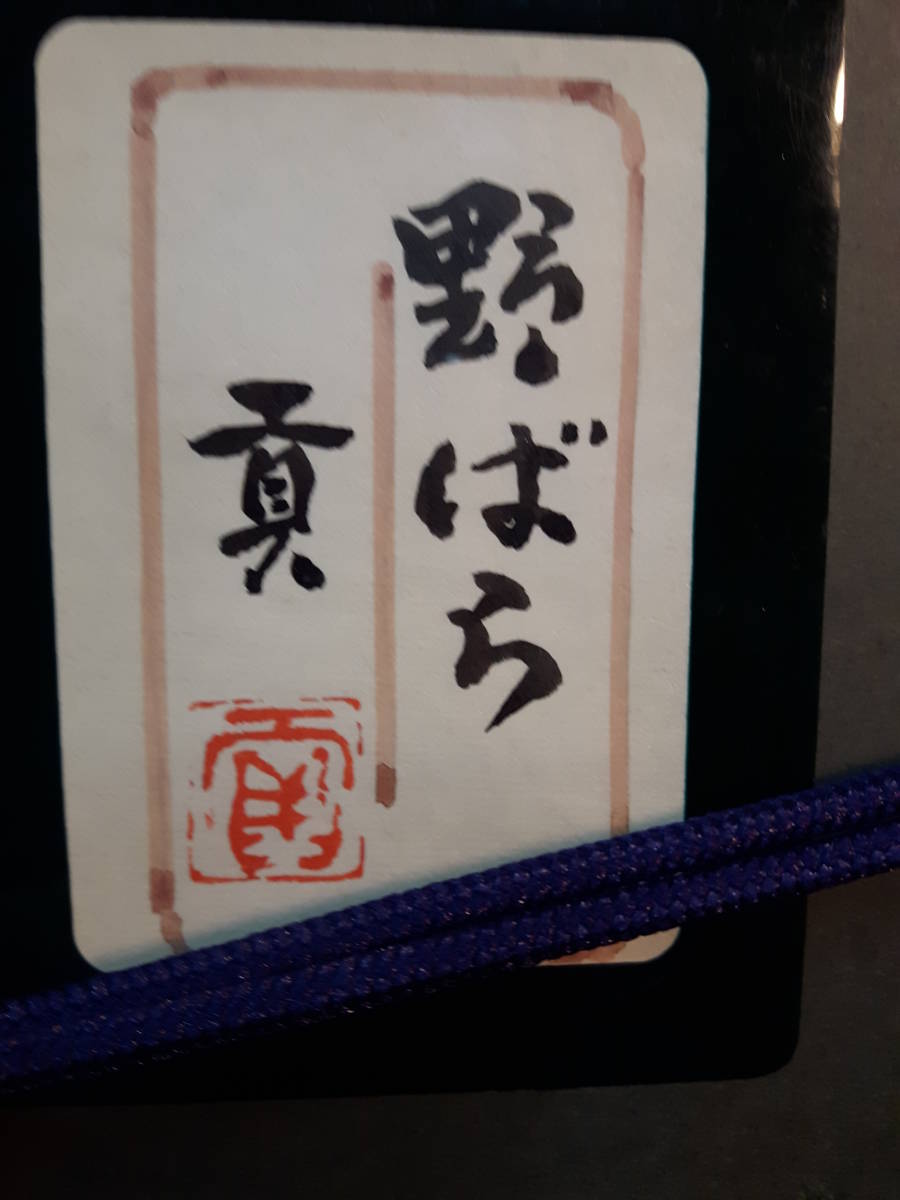 野ばら
貢
貢